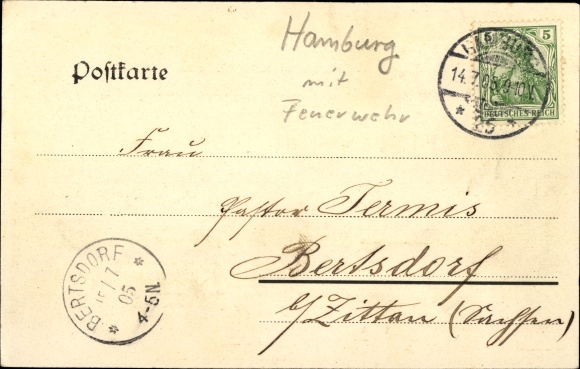 Postkarte
Hamburg
mit
Feuerwehr
5
HAMBURG
14.7.05.9-10V.
* 25 *
DEUTSCHES REICH
Frau
Pastor Termis
Bertsdorf
b/Zittau (Sachsen)
BERTSDORF
15/7
05
4-5N.